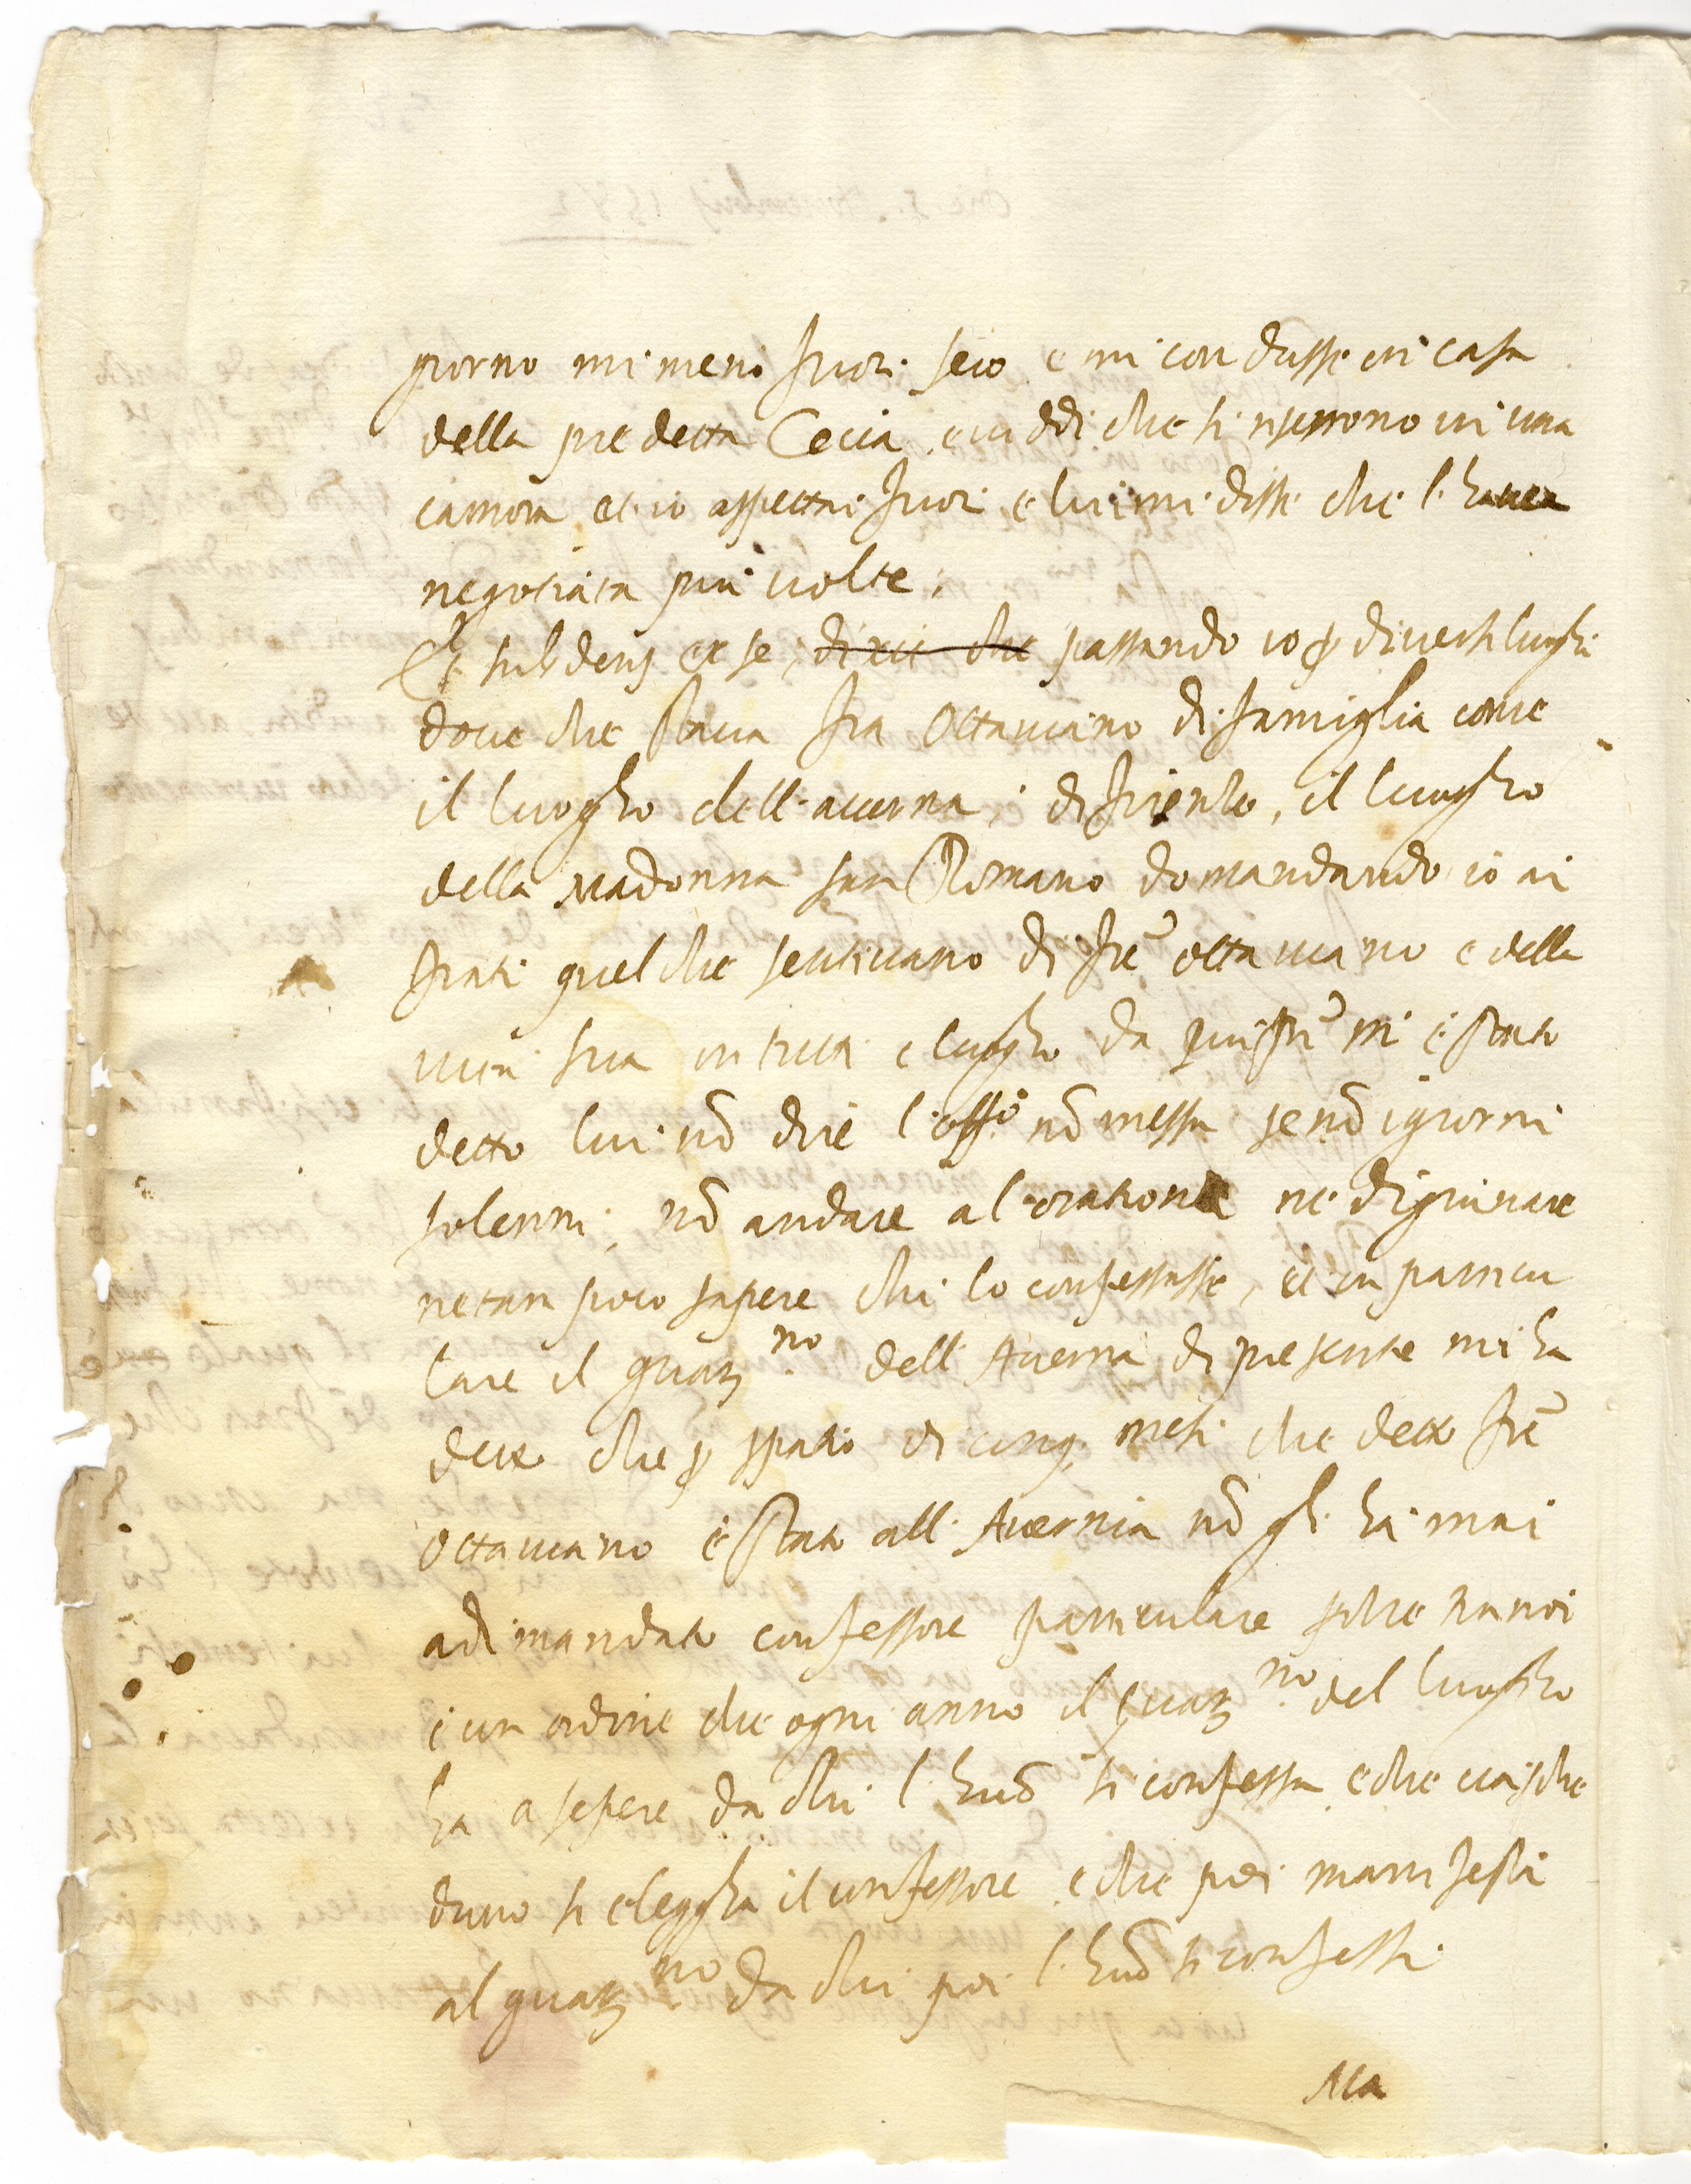 giorno mi menò fuori seco e mi condusse in casa
della predetta Cecia e viddi che si riserrono in una
camora et io aspettai fuori e lui mi disse che l'havea
negotiata più volte,
Et subdens ex se, dixit che passando io p diversi luoghi
dove che stava fra Ottaviano di famiglia come
il luogho dell'averna, di firenze, il luogho
della Madonna san Romano domandando io ai
frati quel che sentivano di fre ottaviano e della
vita sua in tutti e luoghi da più fri mi è stato
detto lui nō dire l'offo nō messa se nō i giorni
solenni, nō andare al oratione ne digiunare
ne tam poco sapere chi lo confessasse, et in particu
lare il guarno dell'Averna di presente mi ha
detto che p spatio di cinq mesi che detto fre
Ottaviano è stato all'Avernia nō gli ha mai
adimandato confessore particulare oltre tra noi
è un ordine che ogni anno il guarno del luogho
ha a sepere da chi l'huō si confessa e che ciasche
duno si elegga il confessore e che poi manifesti
al guarno da chi poi l'huō si confessi
Ma